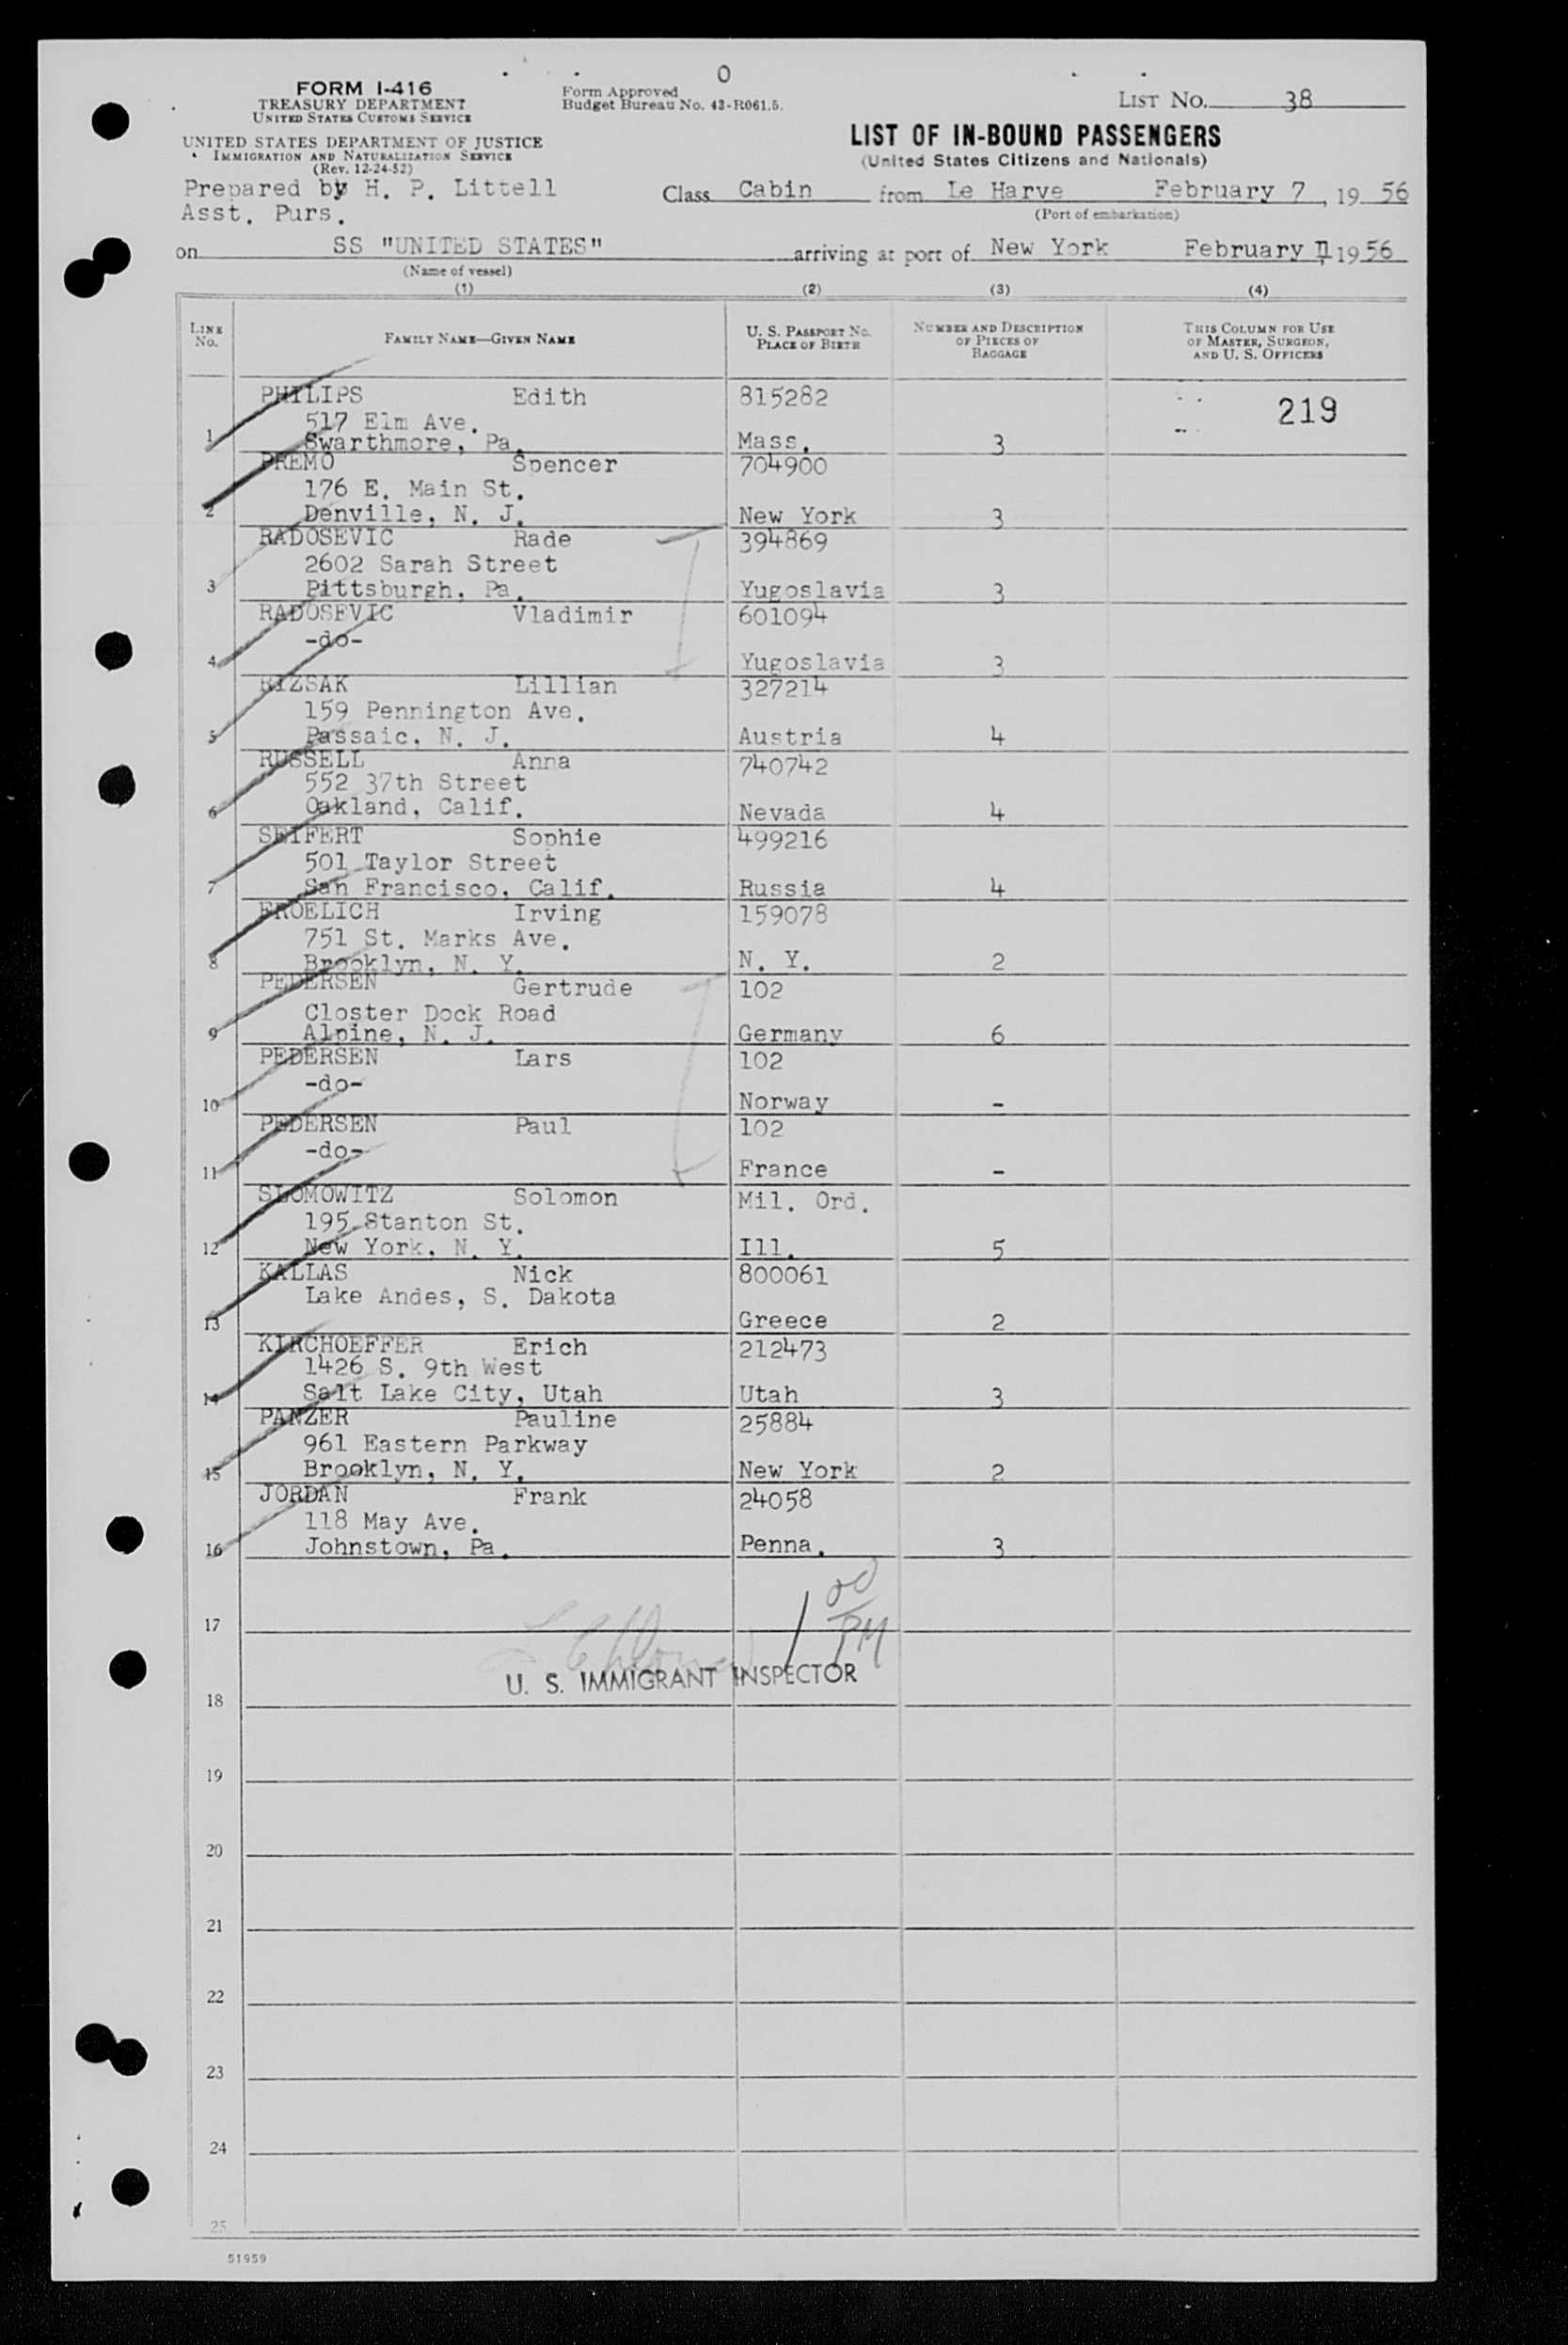 O
FORM I-416
TREASURY DEPARTMENT
UNITED STATES CUSTOMS SERVICE
Form Approved
Budget Bureau No. 43-R061.5.
LIST No. 38
UNITED STATES DEPARTMENT OF JUSTICE
IMMIGRATION AND NATURALIZATION SERVICE
(Rev. 12-24-52)
LIST OF IN-BOUND PASSENGERS
(United States Citizens and Nationals)
Prepared by H. P. Littell
Asst. Purs.
Class Cabin from Le Harve February 7, 19 56
(Port of embarkation)
on SS "UNITED STATES" arriving at port of New York February 1956
(Name of vessel)
(1) (2) (3) (4)
LINE No. FAMILY NAME—GIVEN NAME U. S. PASSPORT No. PLACE OF BIRTH NUMBER AND DESCRIPTION OF PIECES OF BAGGAGE THIS COLUMN FOR USE OF MASTER, SURGEON, AND U. S. OFFICERS
PHILIPS Edith 815282
219
517 Elm Ave.
1 Swarthmore, Pa. Mass. 3
PREMO Spencer 704900
176 E. Main St.
2 Denville, N. J. New York 3
RADOSEVIC Rade 394869
2602 Sarah Street
3 Pittsburgh, Pa. Yugoslavia 3
RADOSEVIC Vladimir 601094
-do-
4 Yugoslavia 3
RIZSAK Lillian 327214
159 Pennington Ave.
5 Passaic, N. J. Austria 4
RUSSELL Anna 740742
552 37th Street
6 Oakland, Calif. Nevada 4
SEIFERT Sophie 499216
501 Taylor Street
7 San Francisco, Calif. Russia 4
FROELICH Irving 159078
751 St. Marks Ave.
8 Brooklyn, N. Y. N. Y. 2
PEDERSEN Gertrude 102
Closter Dock Road
9 Alpine, N. J. Germany 6
PEDERSEN Lars 102
-do-
10 Norway -
PEDERSEN Paul 102
-do-
11 France -
SLOMOWITZ Solomon Mil. Ord.
195 Stanton St.
12 New York, N. Y. Ill. 5
KALLAS Nick 800061
Lake Andes, S. Dakota
13 Greece 2
KIRCHOEFFER Erich 212473
1426 S. 9th West
14 Salt Lake City, Utah Utah 3
PANZER Pauline 25884
961 Eastern Parkway
15 Brooklyn, N. Y. New York 2
JORDAN Frank 24058
118 May Ave.
16 Johnstown, Pa. Penna. 3
1 00 PM
17
U. S. IMMIGRANT INSPECTOR
18
19
20
21
22
23
24
25
51959